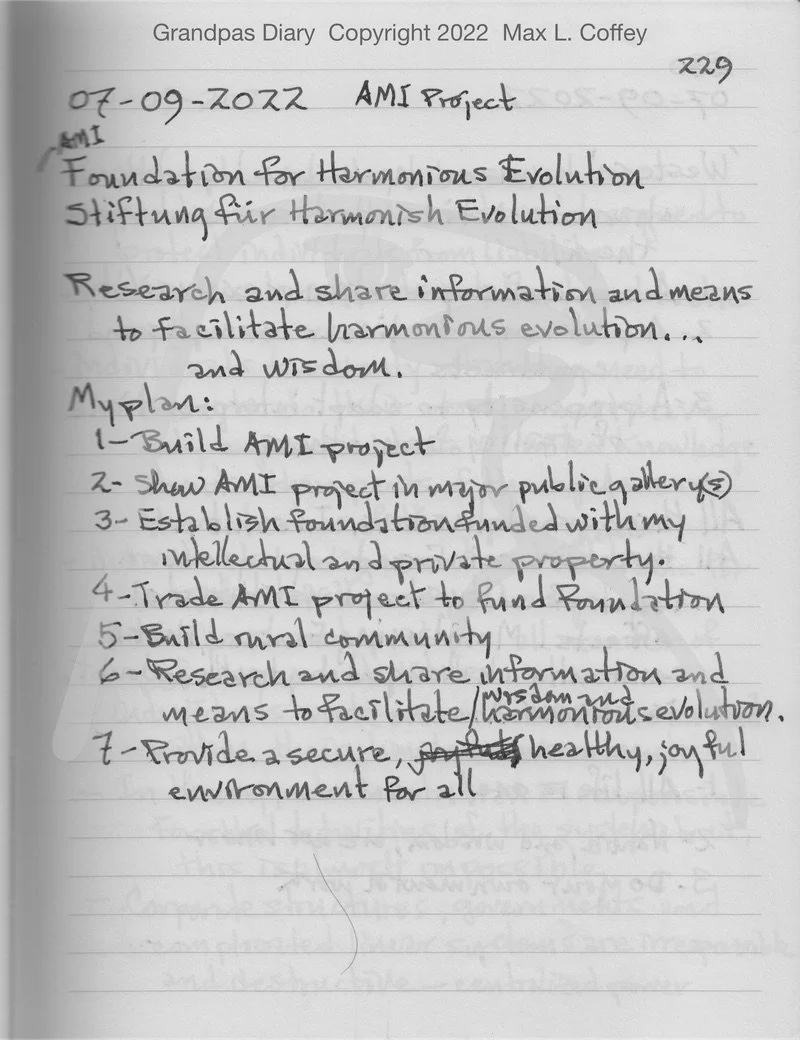 Grandpas Diary Copyright 2022 Max L. Coffey
229
07-09-2022 AMI Project
AMI
Foundation for Harmonious Evolution
Stiftung für Harmonish Evolution
Research and share information and means
to facilitate harmonious evolution...
and wisdom.
My plan:
1- Build AMI project
2- Show AMI project in major public gallery(s)
3- Establish foundation funded with my
intellectual and private property.
4- Trade AMI project to fund foundation
5- Build rural community
6- Research and share information and
wisdom and
means to facilitate/harmonious evolution.
7- Provide a secure, healthy, joyful
environment for all